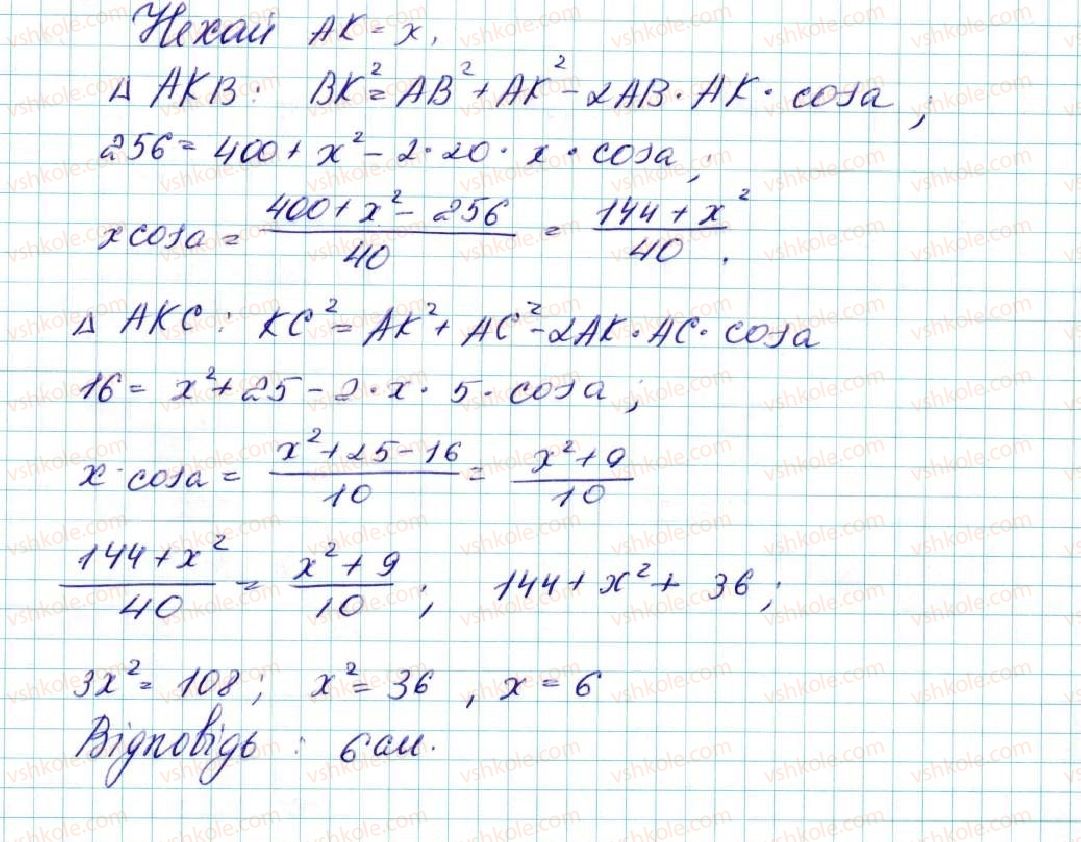 Нехай AK = x,
Δ AKB: BK² = AB² + AK² - 2AB · AK · cosa ;
256 = 400 + x² - 2 · 20 · x · cosa ;
xcosa = (400 + x² - 256)/40 = (144 + x²)/40 .
Δ AKC: KC² = AK² + AC² - 2AK · AC · cosa
16 = x² + 25 - 2 · x · 5 · cosa ;
x · cosa = (x² + 25 - 16)/10 = (x² + 9)/10
(144 + x²)/40 = (x² + 9)/10 ; 144 + x² + 36 ;
3x² = 108 ; x² = 36 , x = 6
Відповідь : 6 см.